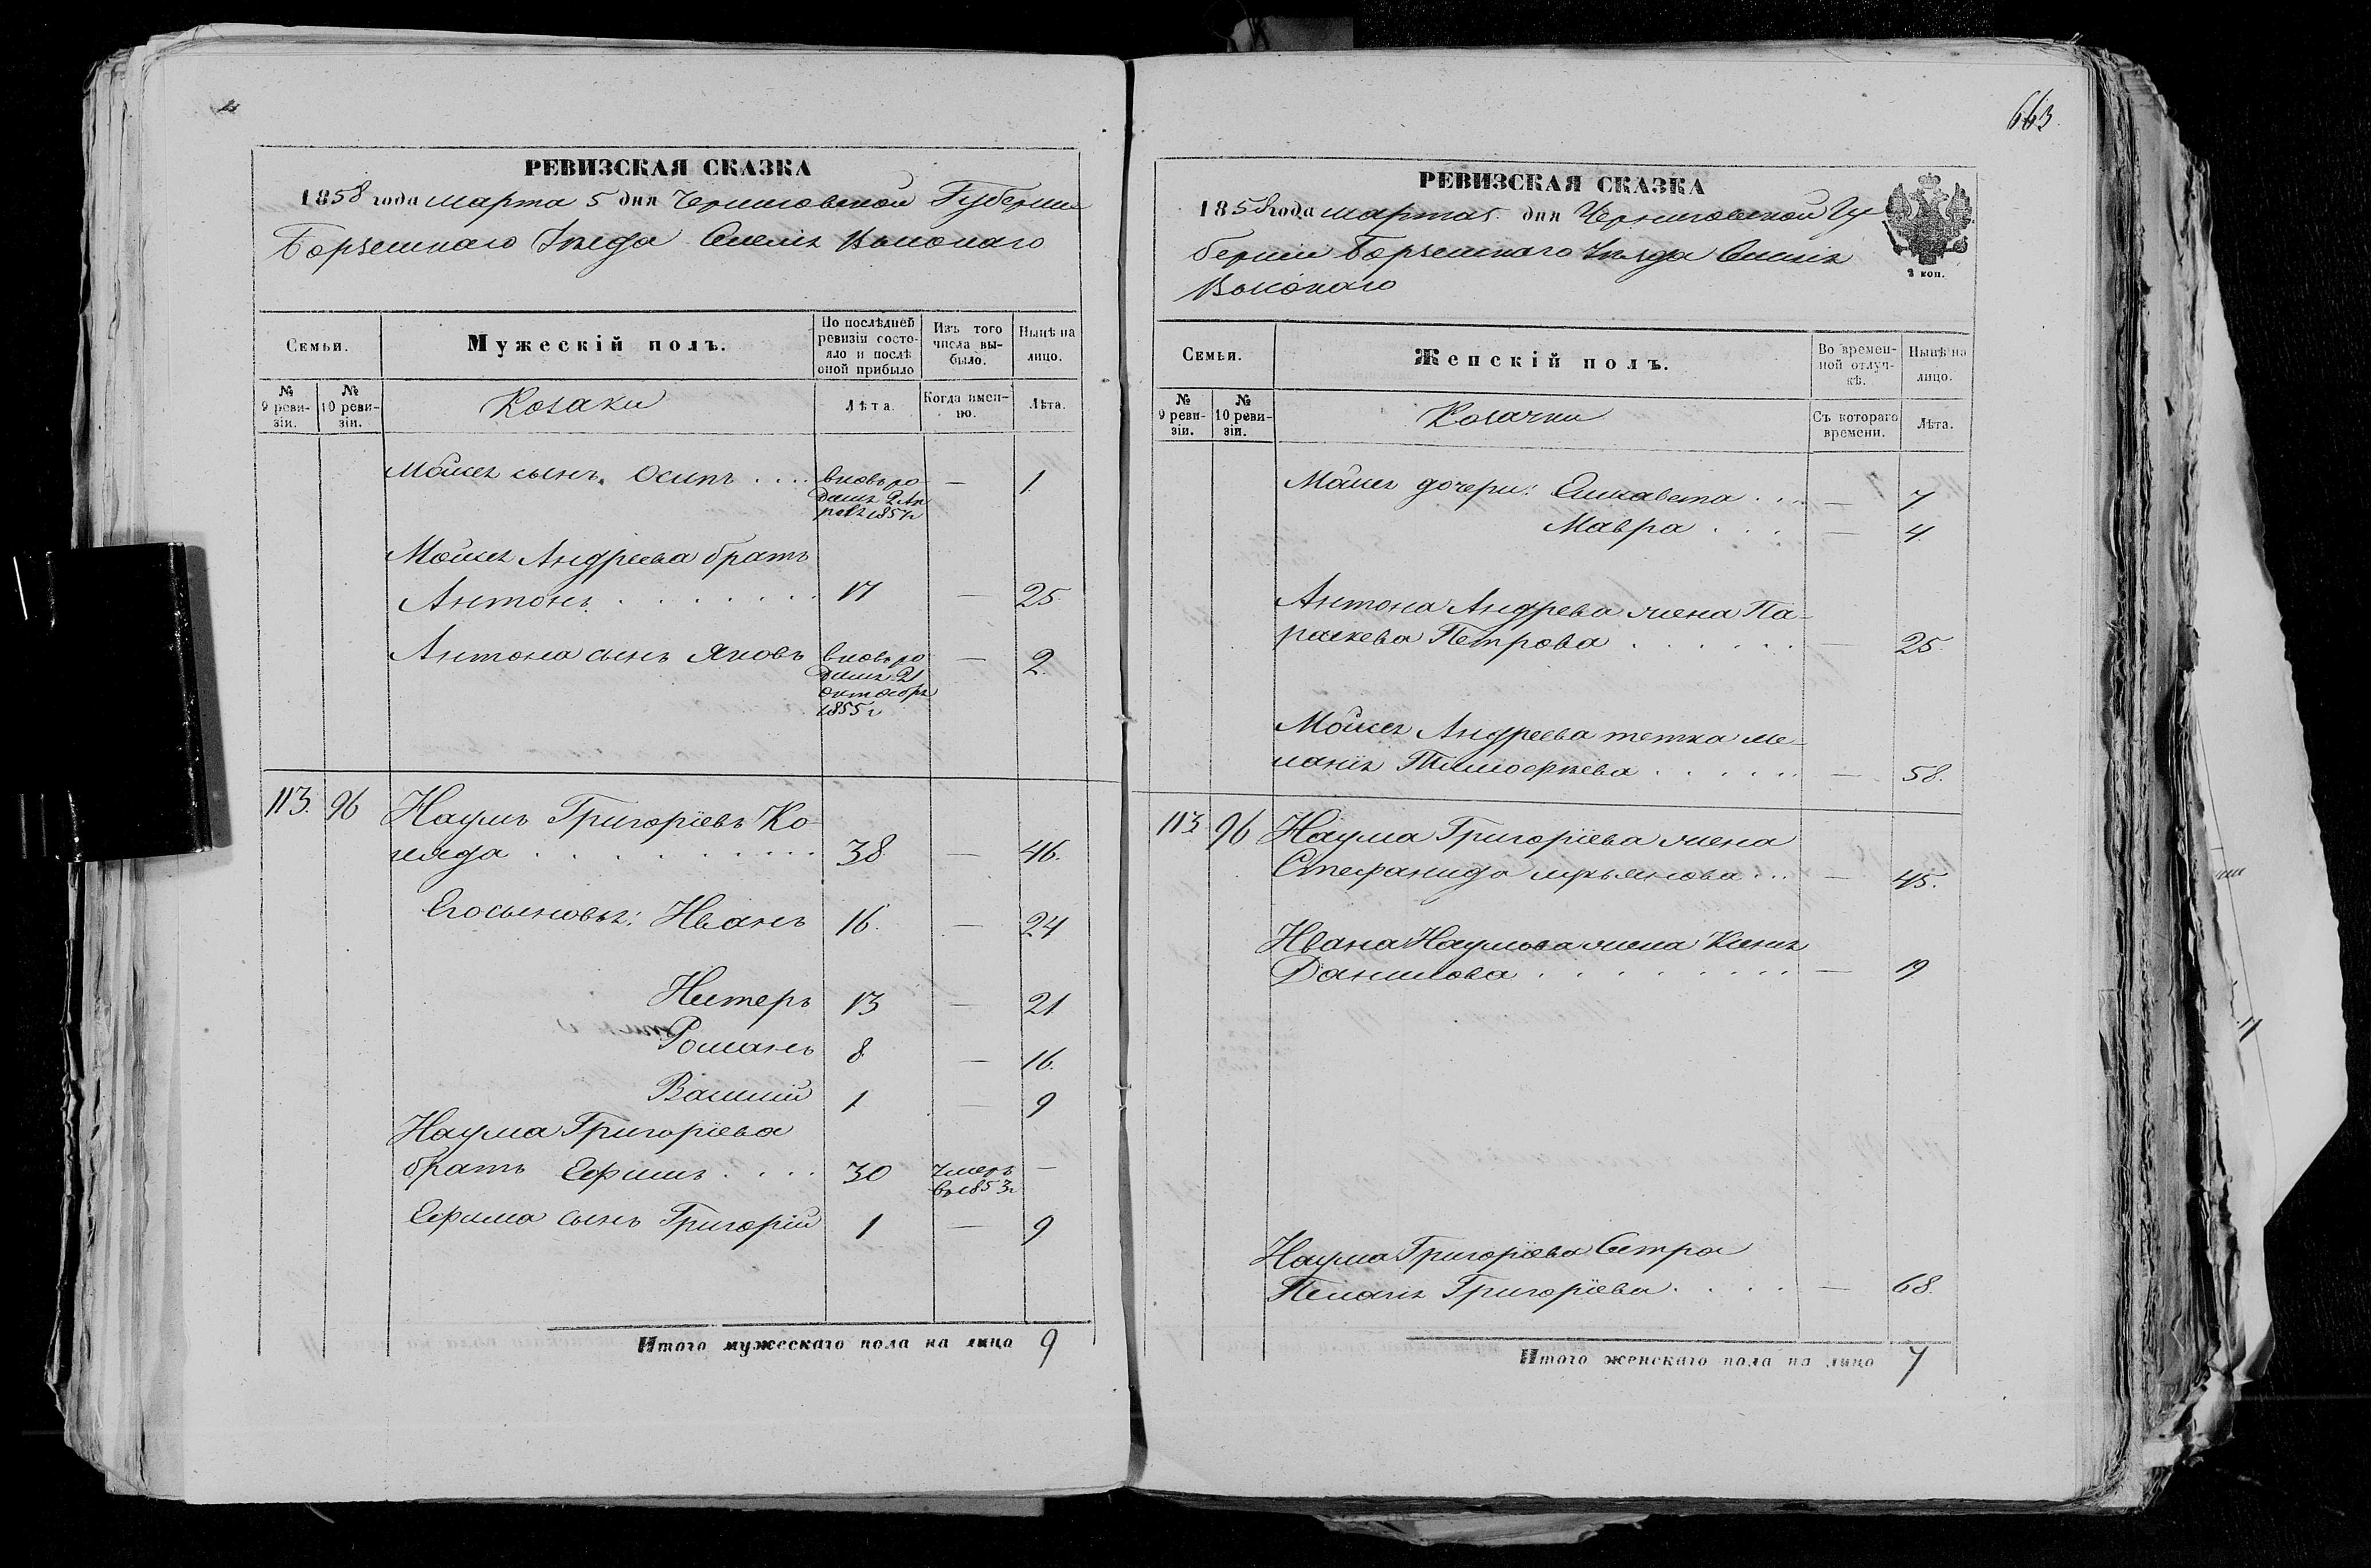 РЕВИЗСКАЯ СКАЗКА
1858 года марта 5 дня Черниговской Губерніи
Борзенскаго Уезда Селенія
Семьи.
Мужескій полъ.
По послѣдней ревизіи состояло и послѣ оной прибыло
Изъ того числа выбыло.
Нынѣ на лицо.
№ 9 ревизіи.
№ 10 ревизіи.
Козаки
Лѣта.
Когда именно.
Лѣта.
Мойсея сынъ Осипъ . . . . вновь рожденъ 2 Апреля 1857 г — 1.
Мойсея Андреева братъ
Антонъ . . . . . . . . 17 — 25.
Антона сынъ Яковъ вновь рожденъ 21 октября 1855 г — 2.
113. 96 Наумъ Григоріевъ Ко-
ляда . . . . . . . . . 38. — 46.
Его сыновья: Иванъ 16. — 24
Нестеръ 13 — 21
Романъ 8 — 16.
Василій 1 — 9
Наума Григоріева
братъ Ефимъ . . . . 30 Умеръ въ 1853 г —
Ефима сынъ Григорій 1 — 9
Итого мужескаго пола на лицо 9
663.
РЕВИЗСКАЯ СКАЗКА
1858 года марта 5 дня Черниговской Гу-
берніи Борзенскаго Уезда Селенія
2 коп.
Семьи.
Женскій полъ.
Во временной отлучкѣ.
Нынѣ на лицо.
№ 9 ревизіи.
№ 10 ревизіи.
Козачки
Съ котораго времени.
Лѣта.
Мойсея дочери: Елисавета . . . — 7
Мавра . . . — 4.
Антона Андреева жена Па-
раскева Петрова . . . . . . — 25.
Мойсея Андреева тетка Ме-
ланія Тимофеева . . . . . — 58.
113. 96 Наума Григоріева жена
Стефанида . . . — 45.
Ивана Наумова жена
Данилова . . . . . . . . — 19
Наума Григоріева Сестра
Пелагія Григоріева . . . . — 68.
Итого женскаго пола на лицо 7